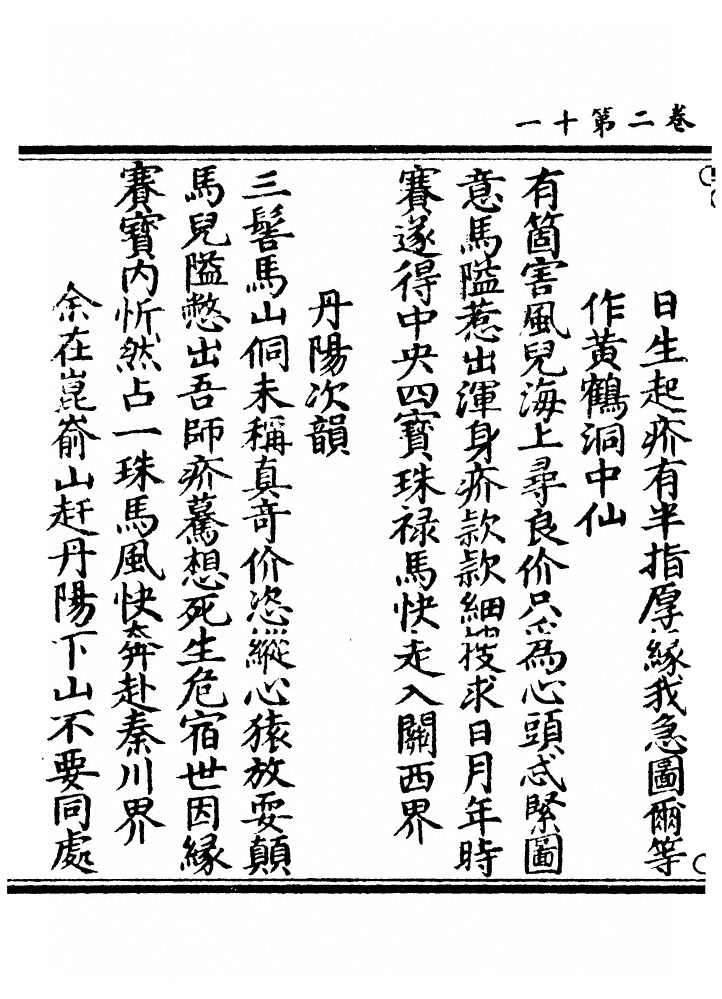 卷二第十一
日生起疥有半指厚緣我急圖爾等
作黃鶴洞中仙
有箇害風兒海上尋良价只爲心頭忒緊圖
意馬隘惹出渾身疥款款細搜求日月年時
賽遂得中央四寶珠禄馬快走入關西界
丹陽次韻
三髻馬山侗未稱真竒价恣縱心猿放耍顛
馬兒隘憋出吾師疥驀想死生危宿世因緣
賽寳内忻然占一珠馬風快奔赴秦川界
余在崑嵛山赶丹陽下山不要同處